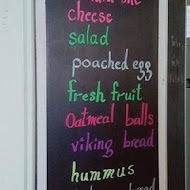 cheese
salad
poached egg
fresh fruit
Oatmeal balls
viking bread
hummus
bread